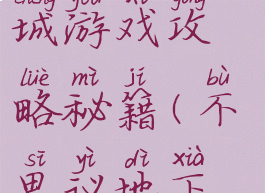 chéng yóu xì gōng
城游戏攻
lüè mì jí bù
略秘籍(不
sī yì dì xià
思秘地下